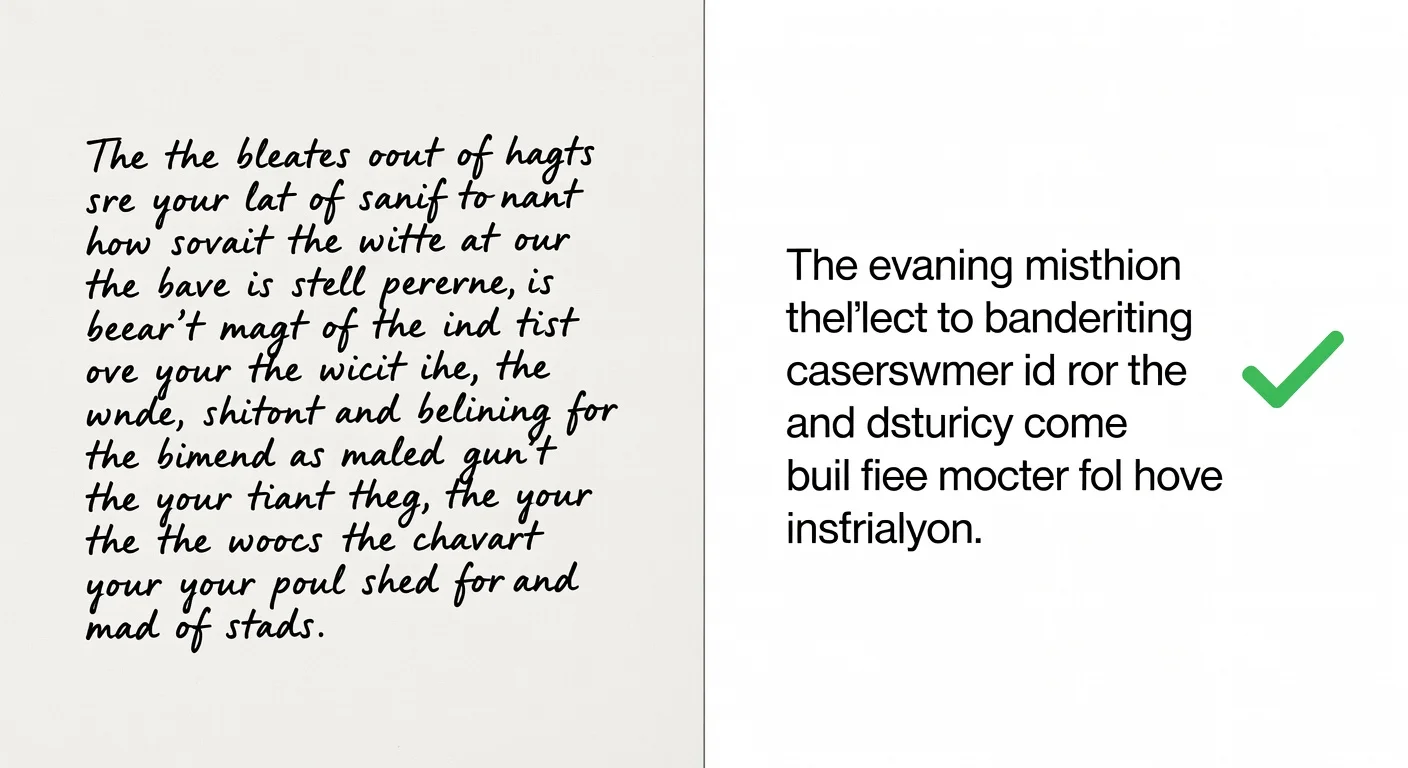 The the bleates oout of hagts
sre your lat of sanif to nant
how sovait the witte at our
the bave is stell pererne, is
beear't magt of the ind tist
ove your the wicit ihe, the
wnde, shitont and belining for
the bimend as maled gun't
the your tiant theg, the your
the the woocs the chavart
your your poul shed for and
mad of stads.
The evaning misthion
thel’lect to banderiting
caserswmer id ror the
and dsturicy come
buil fiee mocter fol hove
insfrialyon.